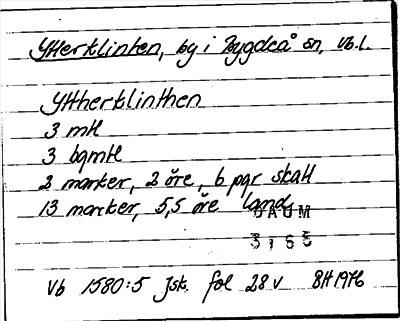 Ytterklinten, by i Bygdeå sn, Vb.l.
Yttherklinthen
3 mtl
3 bgmtl
2 marker, 2 öre, 6 pgr skatt
13 marker, 5,5 öre land
DAUM
3165
Vb 1580:5 Jsk. fol 28 v BH 1976